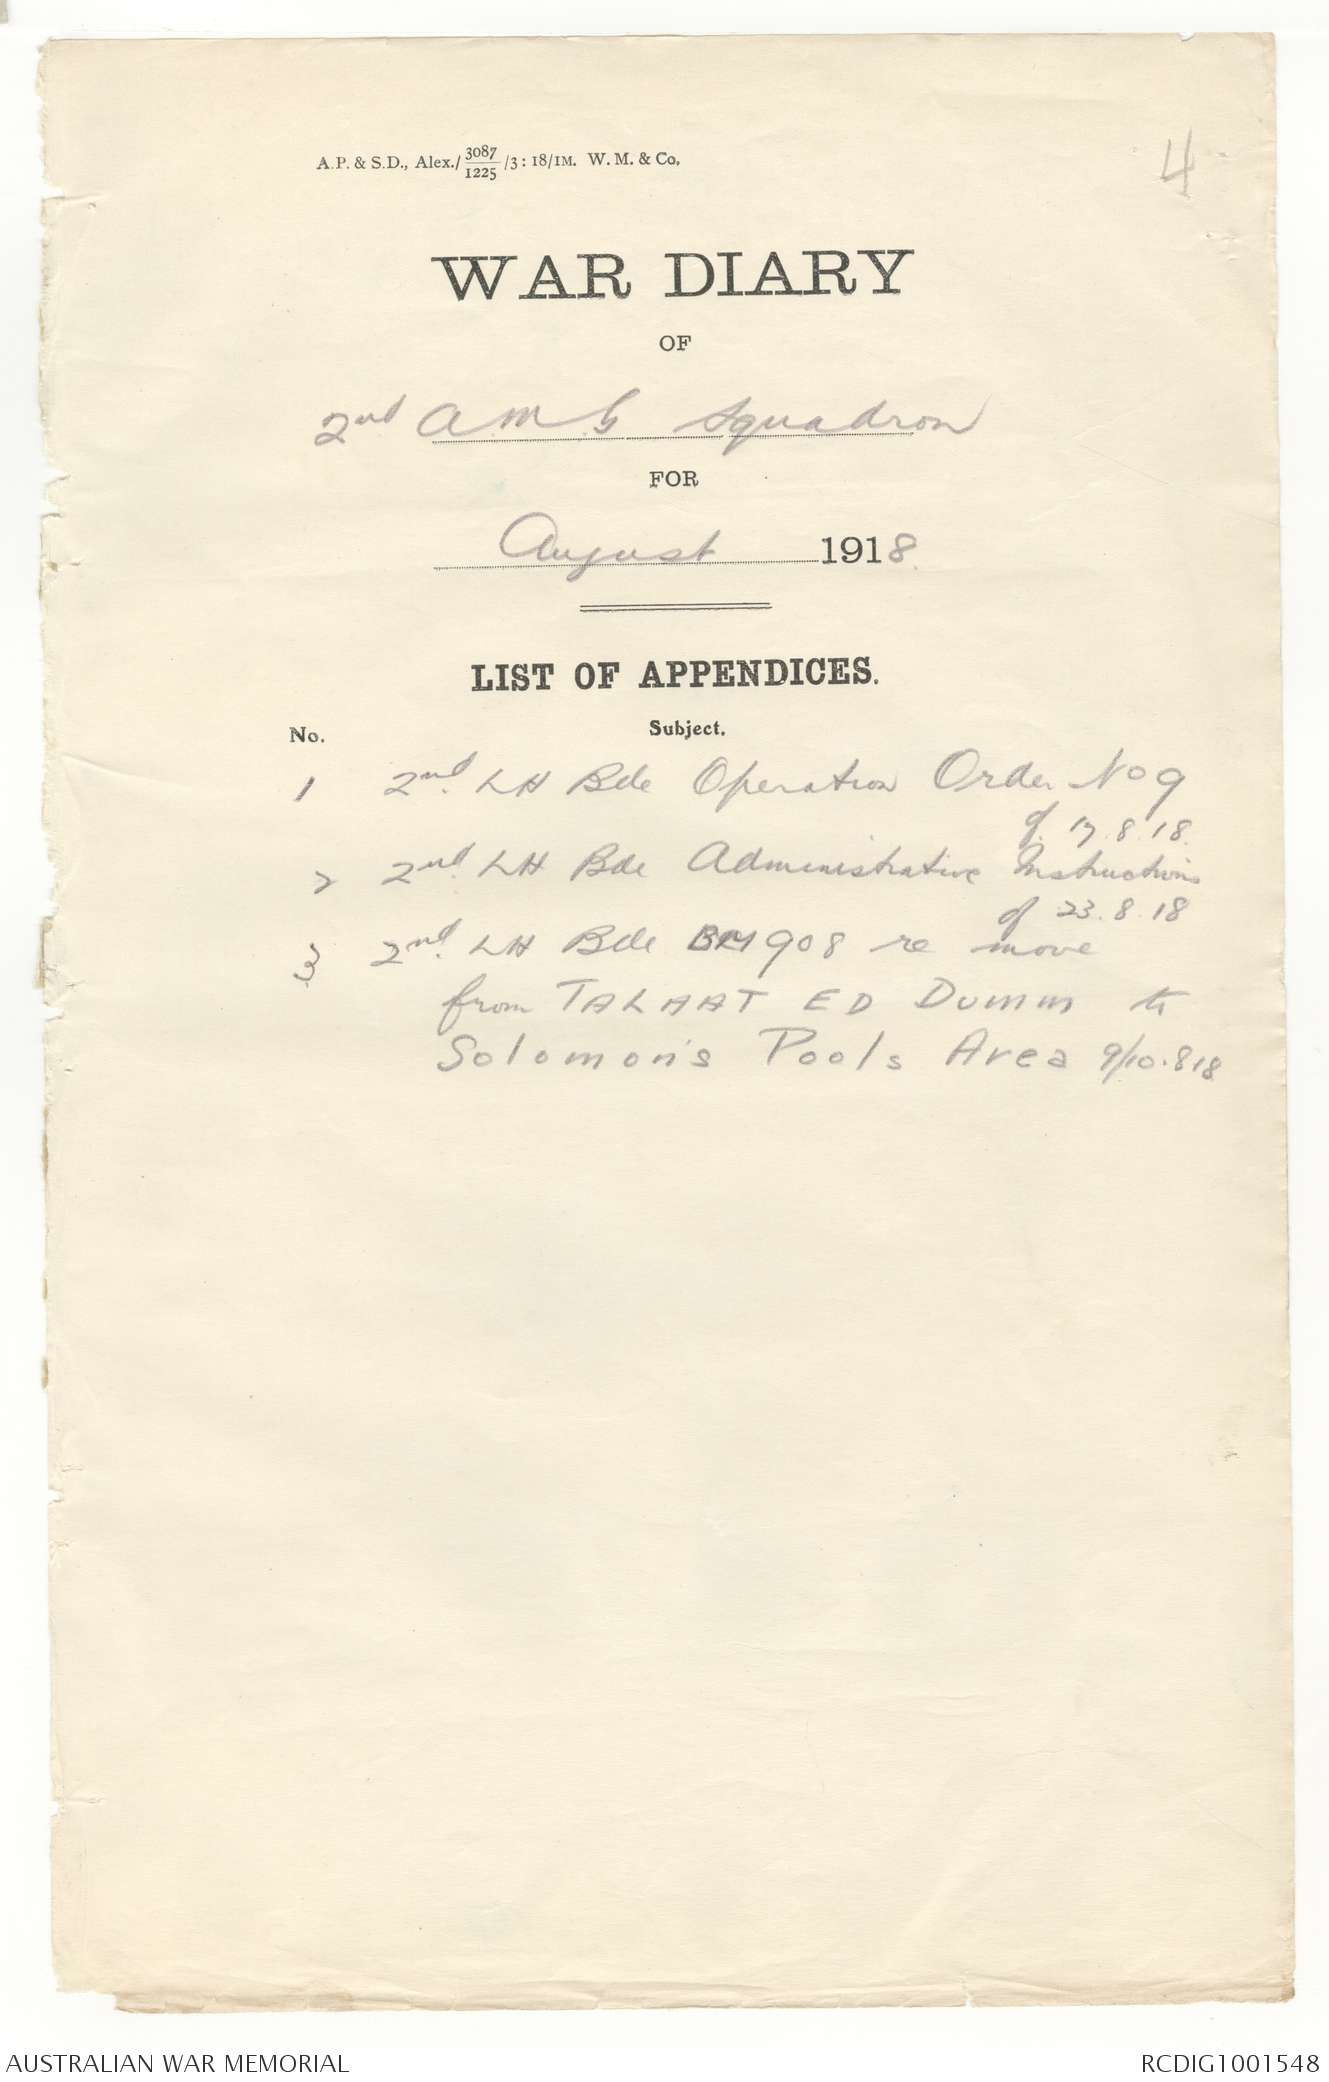 A.P. & S.D., Alex./3087/1225/3:18/1M. W. M. & Co.
4
WAR DIARY
OF
2nd A.M.G Squadron
FOR
August 1918.
LIST OF APPENDICES.
No. Subject.
1 2nd. LH Bde Operation Order No 9
of. 17.8.18.
2 2nd. LH Bde Administrative Instructions
of 23.8.18
3 2nd. LH Bde BM908 re move
from TALAAT ED Dumm to
Solomon's Pools Area 9/10.8.18
AUSTRALIAN WAR MEMORIAL
RCDIG1001548